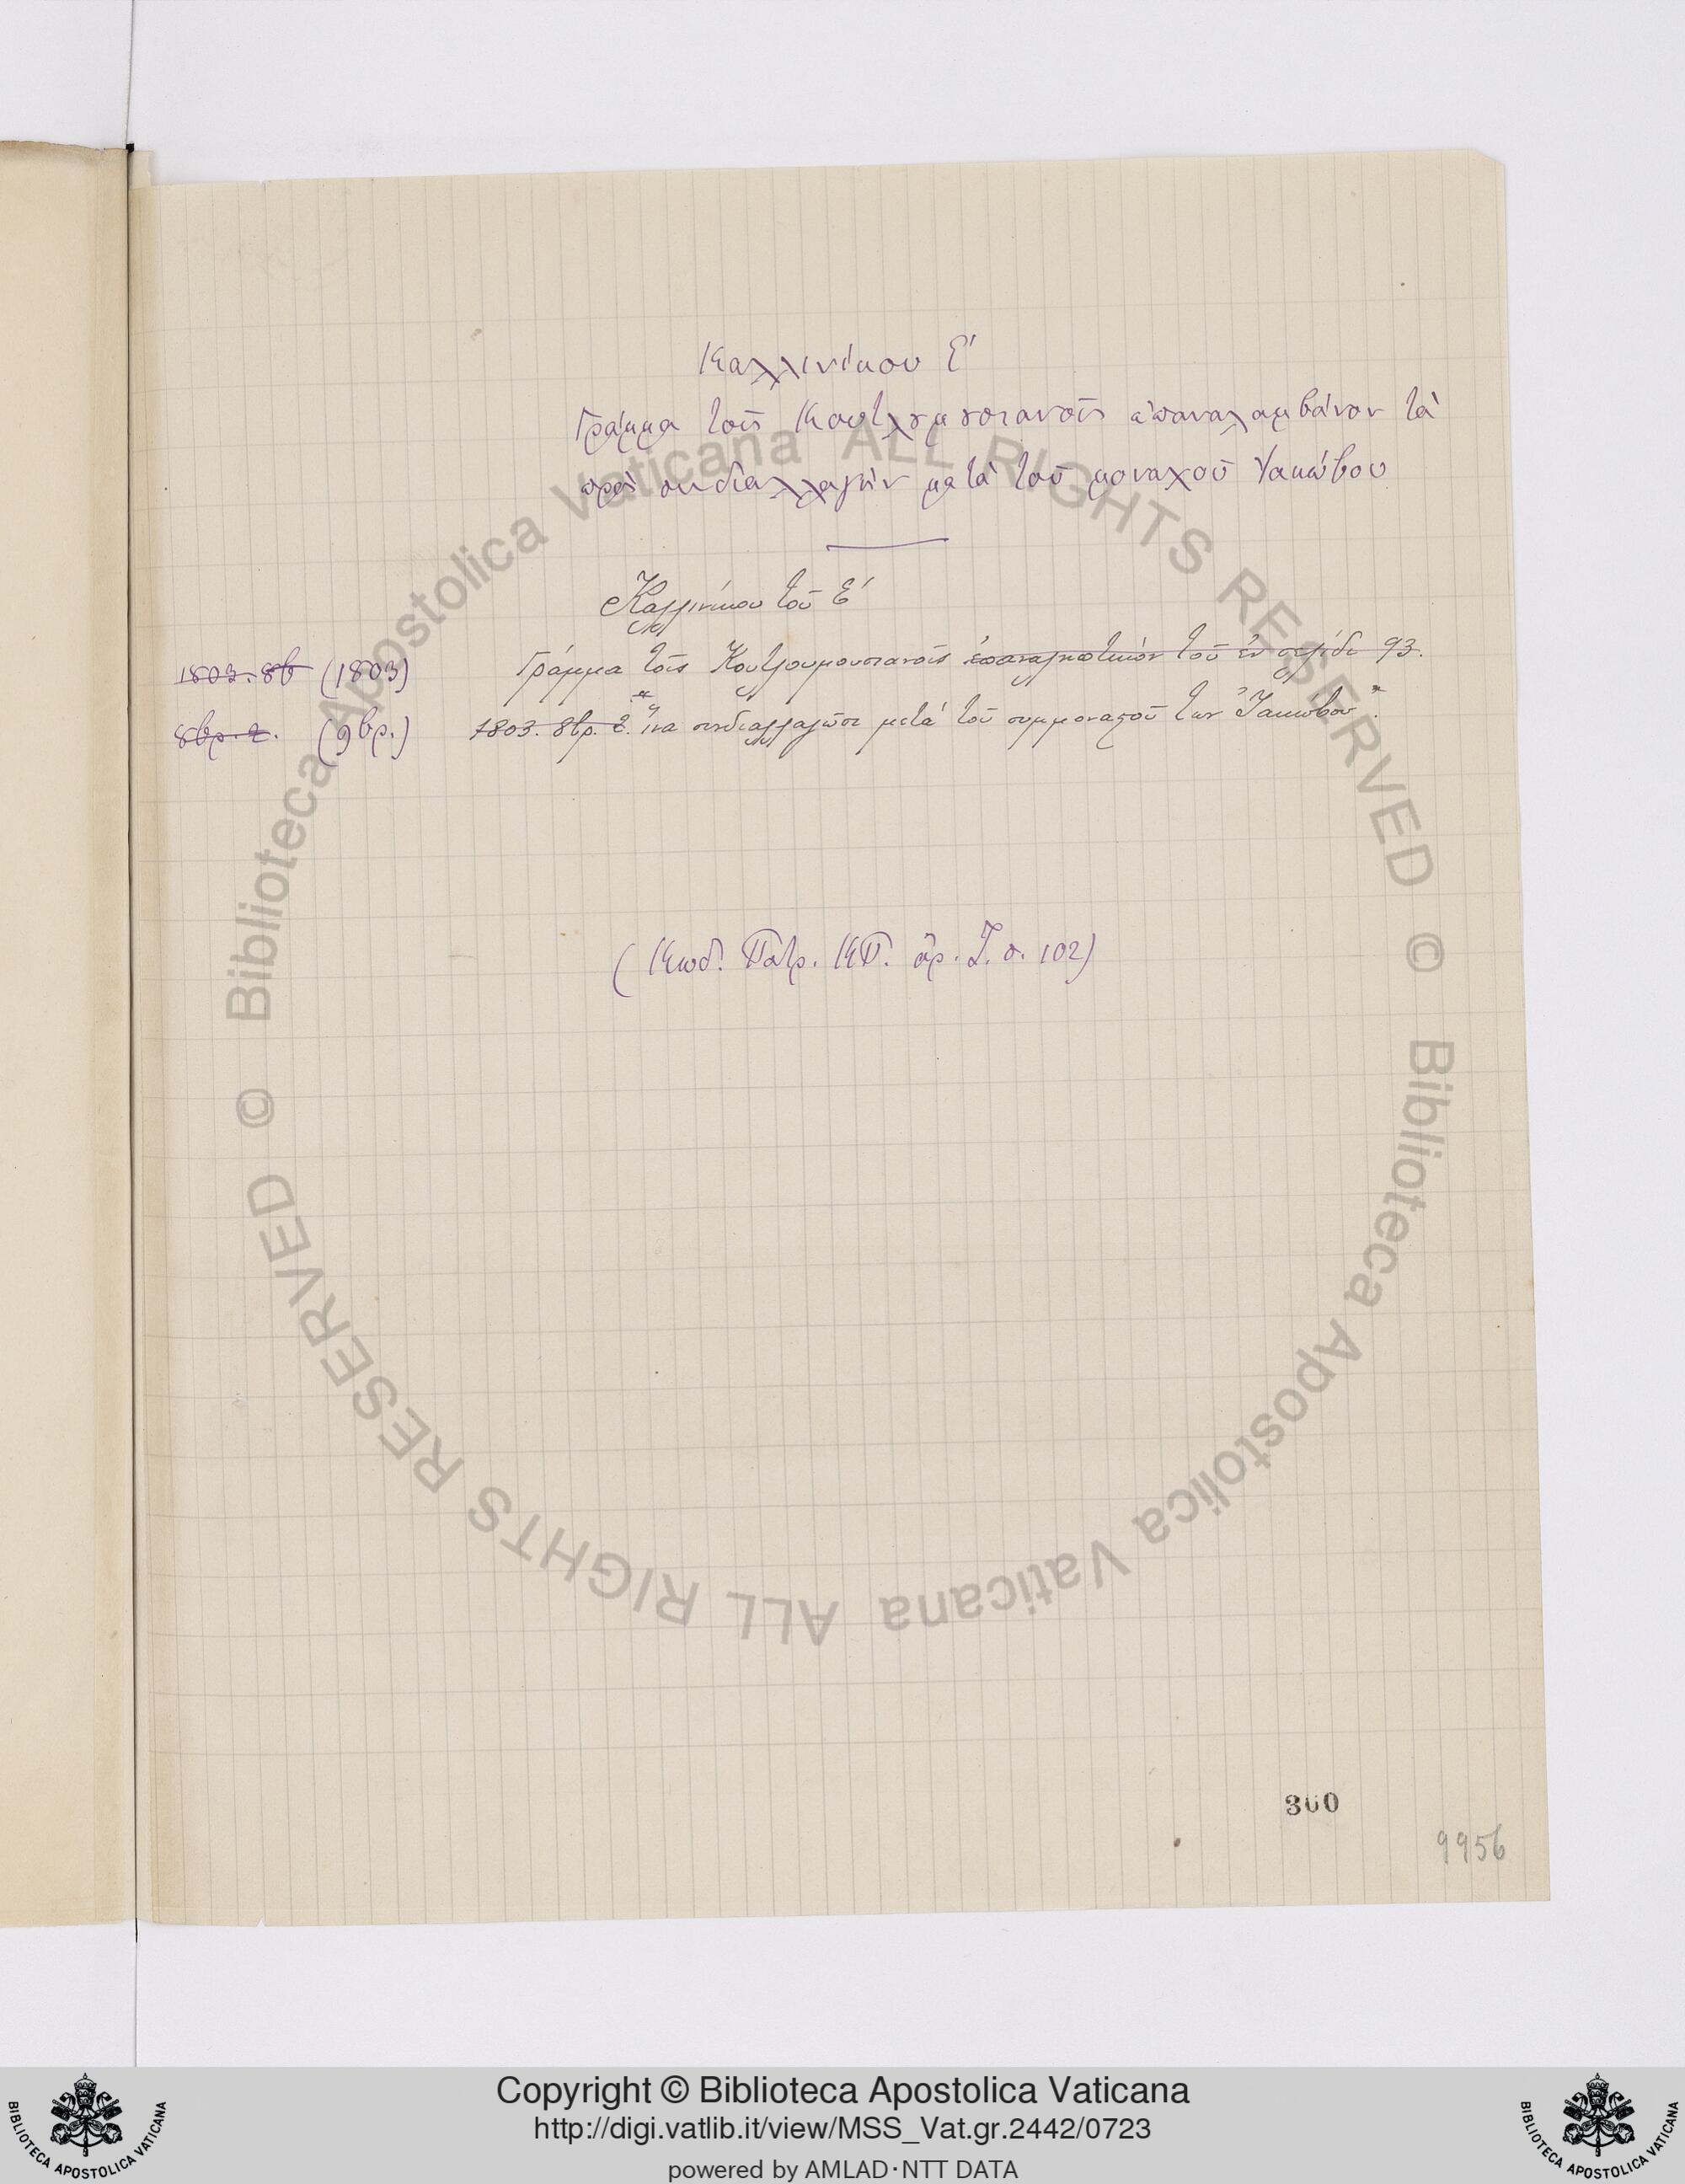 Καλλινίκου Ε'
Γράμμα τοῖς Κουτλȣμȣσιανοῖς ἐπαναλαμβάνον τὰ
πρὸς συνδιαλλαγὴν μετὰ τοῦ μοναχοῦ Ἰακώβου
Καλλινίκου τοῦ Ε'
1803. 8β (1803) Γράμμα τοῖς Κουτλουμουσιανοῖς ἐπαναληπτικὸν τοῦ ἐν σελίδι 93.
8βρ. 2. (9βρ.) 1803. 8βρ. 2. "ἵνα συνδιαλλαγῶσι μετὰ τοῦ συμμοναχοῦ των Ἰακώβου".
(Κωδ. Πατρ. ΚΠ. ἀρ. Ι. σ. 102)
300
9956
© Biblioteca Apostolica Vaticana ALL RIGHTS RESERVED
© Biblioteca Apostolica Vaticana ALL RIGHTS RESERVED
Copyright © Biblioteca Apostolica Vaticana
http://digi.vatlib.it/view/MSS_Vat.gr.2442/0723
powered by AMLAD·NTT DATA
BIBLIOTECA APOSTOLICA VATICANA
BIBLIOTECA APOSTOLICA VATICANA